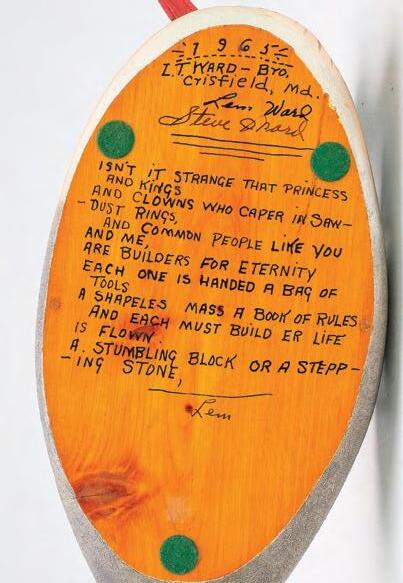 1965
L.T. WARD - Bro.
Crisfield, Md.
Lem Ward
Steve Ward
ISN'T IT STRANGE THAT PRINCESS
AND KINGS
AND CLOWNS WHO CAPER IN SAW-
-DUST RINGS,
AND COMMON PEOPLE LIKE YOU
AND ME,
ARE BUILDERS FOR ETERNITY
EACH ONE IS HANDED A BAG OF
TOOLS
A SHAPELES MASS A BOOK OF RULES
AND EACH MUST BUILD ER LIFE
IS FLOWN.
A. STUMBLING BLOCK OR A STEPP-
-ING STONE,
Lem